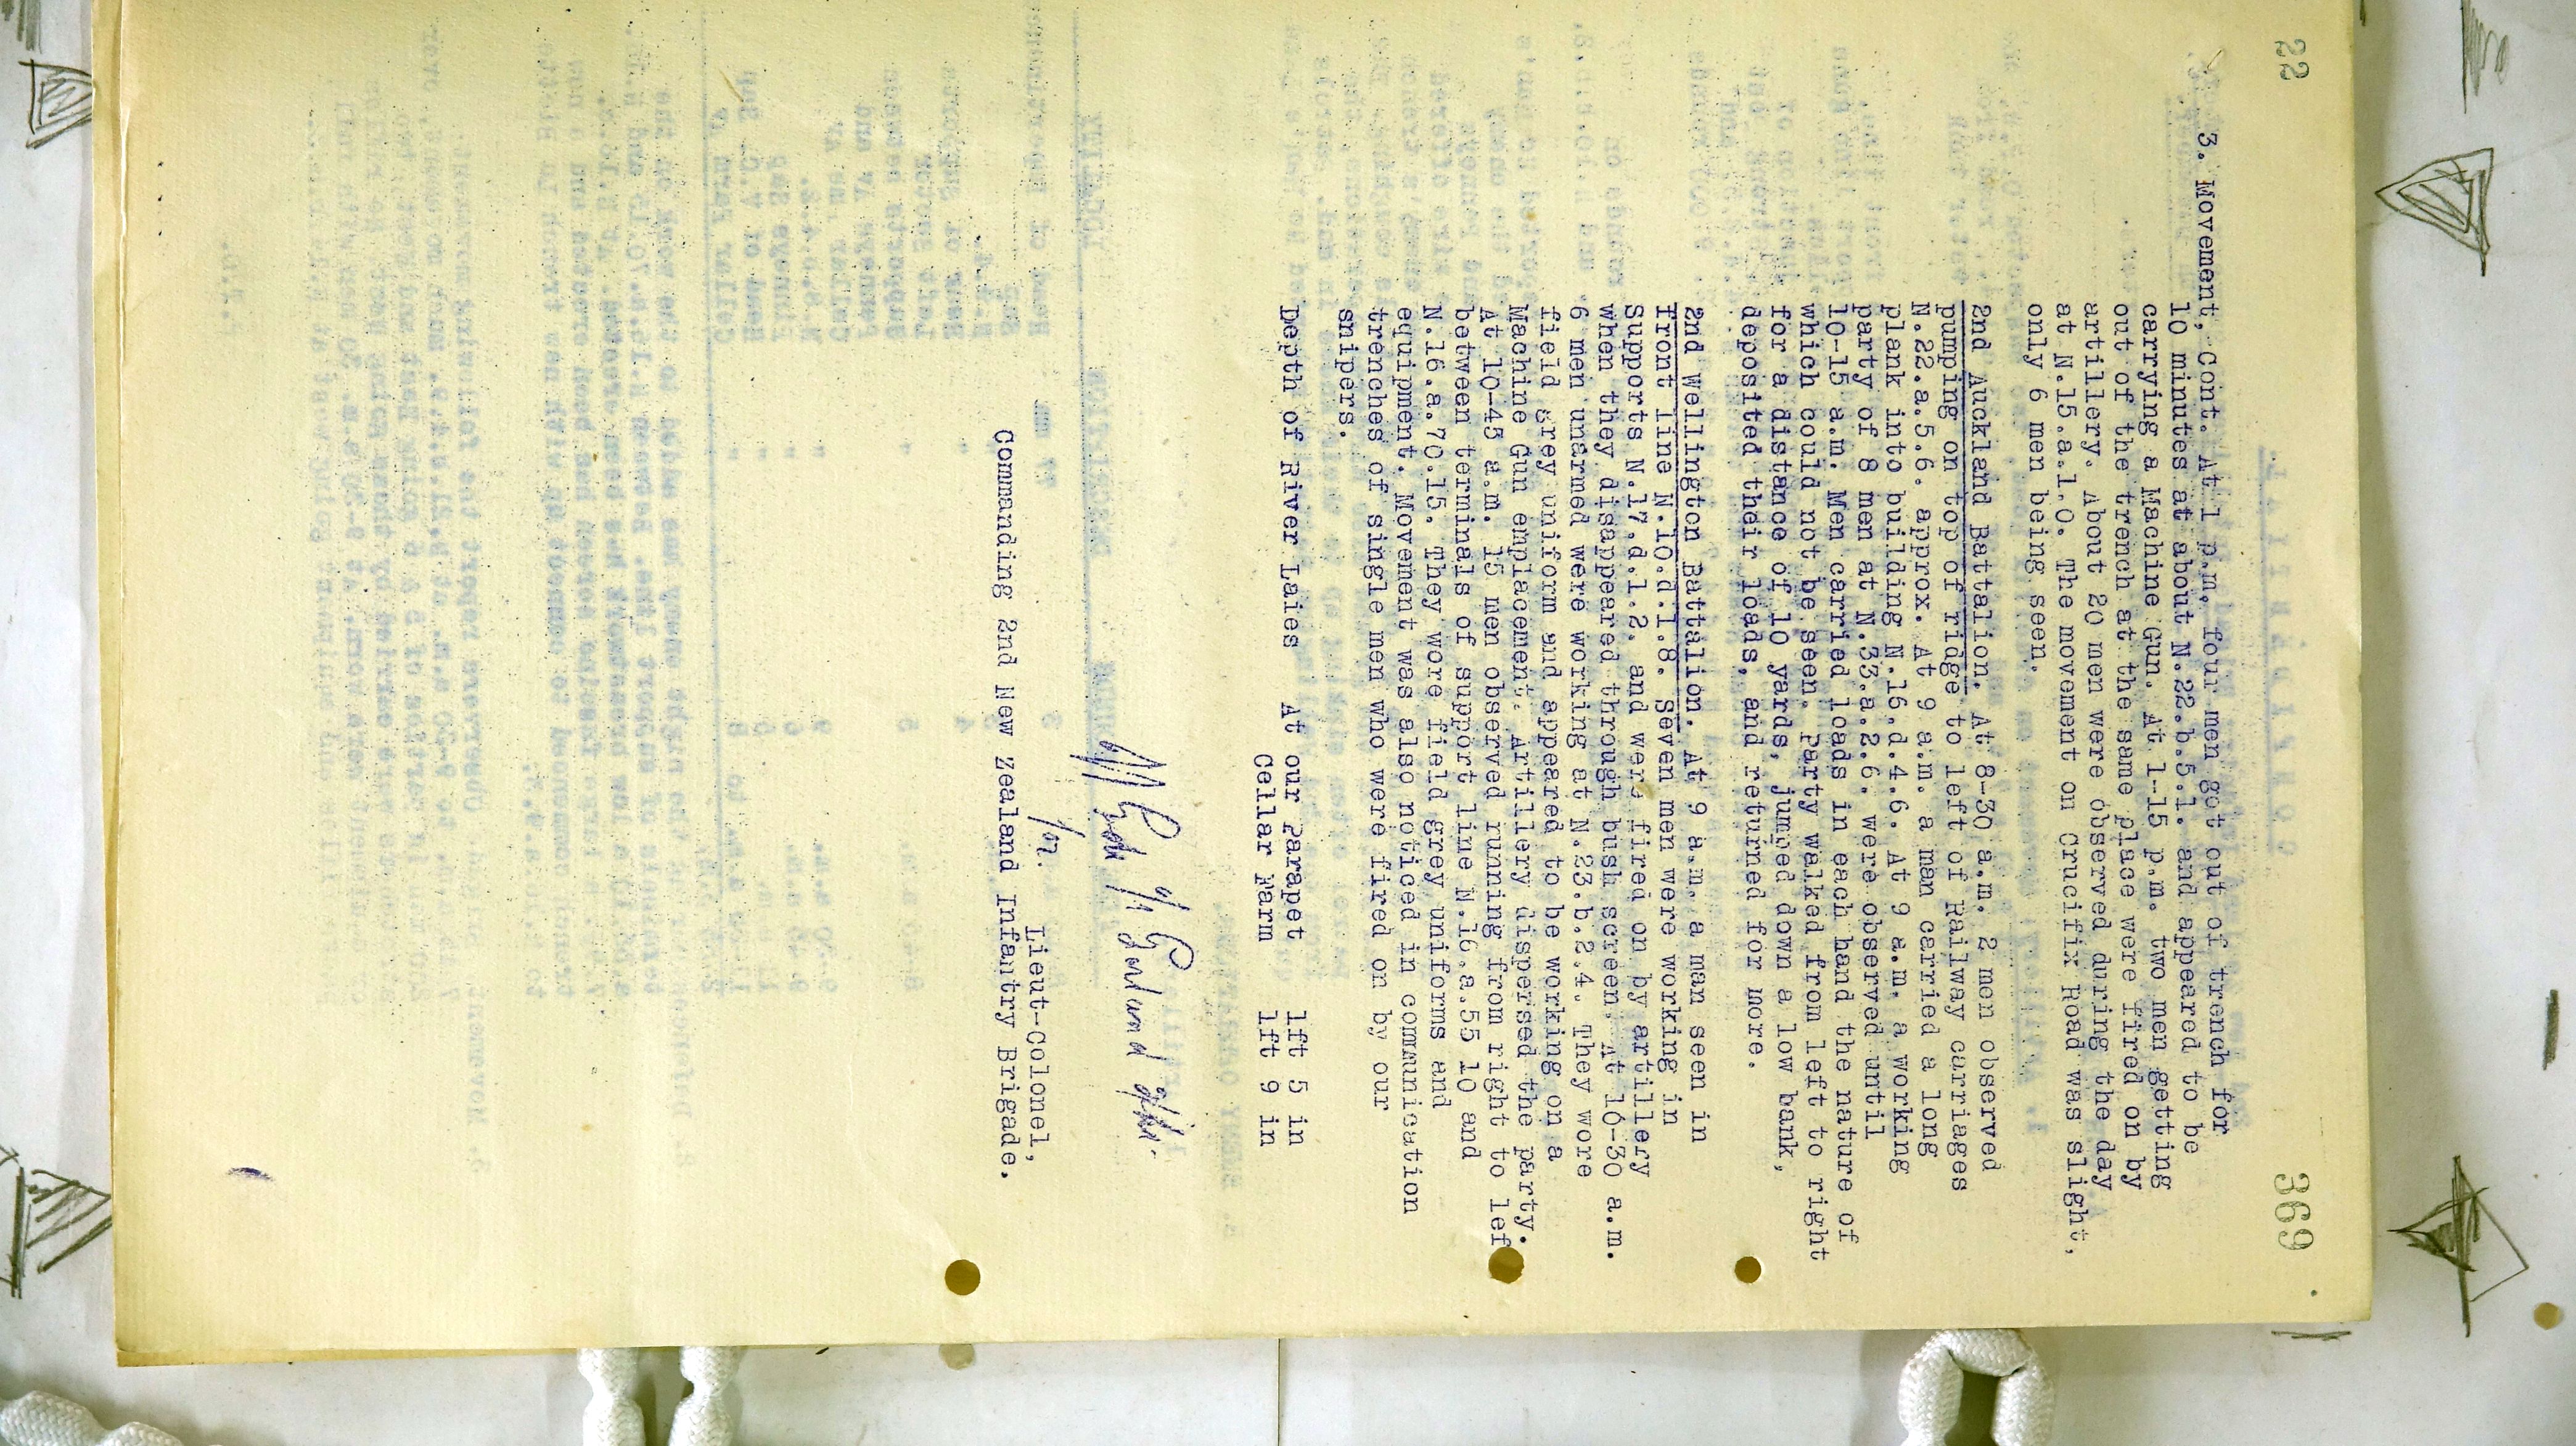 22
369
3. Movement, Cont. At 1 p.m. four men got out of trench for
10 minutes at about N.22.b.5.1. and appeared to be
carrying a Machine Gun. At 1-15 p.m. two men getting
out of the trench at the same place were fired on by
artillery. About 20 men were observed during the day
at N.15.a.1.0. The movement on Crucifix Road was slight,
only 6 men being seen.
2nd Auckland Battalion. At 8-30 a.m. 2 men observed
pumping on top of ridge to left of Railway carriages
N.22.a.5.6. approx. At 9 a.m. a man carried a long
plank into building N.16.d.4.6. At 9 a.m. a working
party of 8 men at N.33.a.2.6. were observed until
10-15 a.m. Men carried loads in each hand the nature of
which could not be seen. Party walked from left to right
for a distance of 10 yards, jumped down a low bank,
deposited their loads, and returned for more.
2nd Wellington Battalion. At 9 a.m. a man seen in
front line N.10.d.1.8. Seven men were working in
Supports N.17.d.1.2. and were fired on by artillery
when they disappeared through bush screen. At 10-30 a.m.
6 men unarmed were working at N.23.b.2.4. They wore
field grey uniform and appeared to be working on a
Machine Gun emplacement. Artillery dispersed the party.
At 10-45 a.m. 15 men observed running from right to lef
between terminals of support line N.16.a.55 10 and
N.16.a.70.15. They wore field grey uniforms and
equipment. Movement was also noticed in communication
trenches of single men who were fired on by our
snipers.
Depth of River Laies At our Parapet 1ft 5 in
Cellar Farm 1ft 9 in
Lieut-Colonel,
Commanding 2nd New Zealand Infantry Brigade.